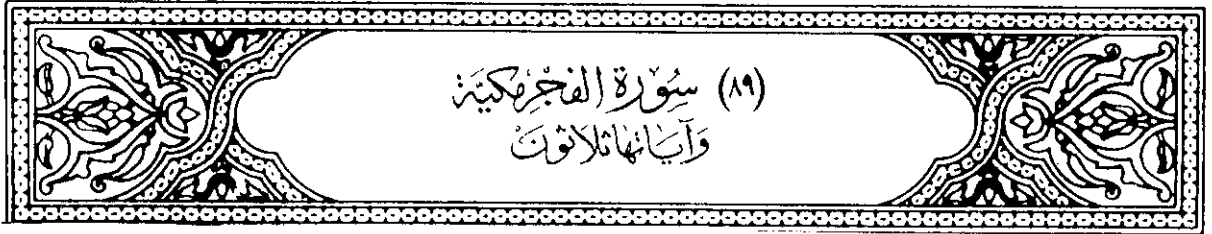 (٨٩) سُورَة الفَجْرِ مَكيَّة
وَآيَاتُها ثَلاثُونَ